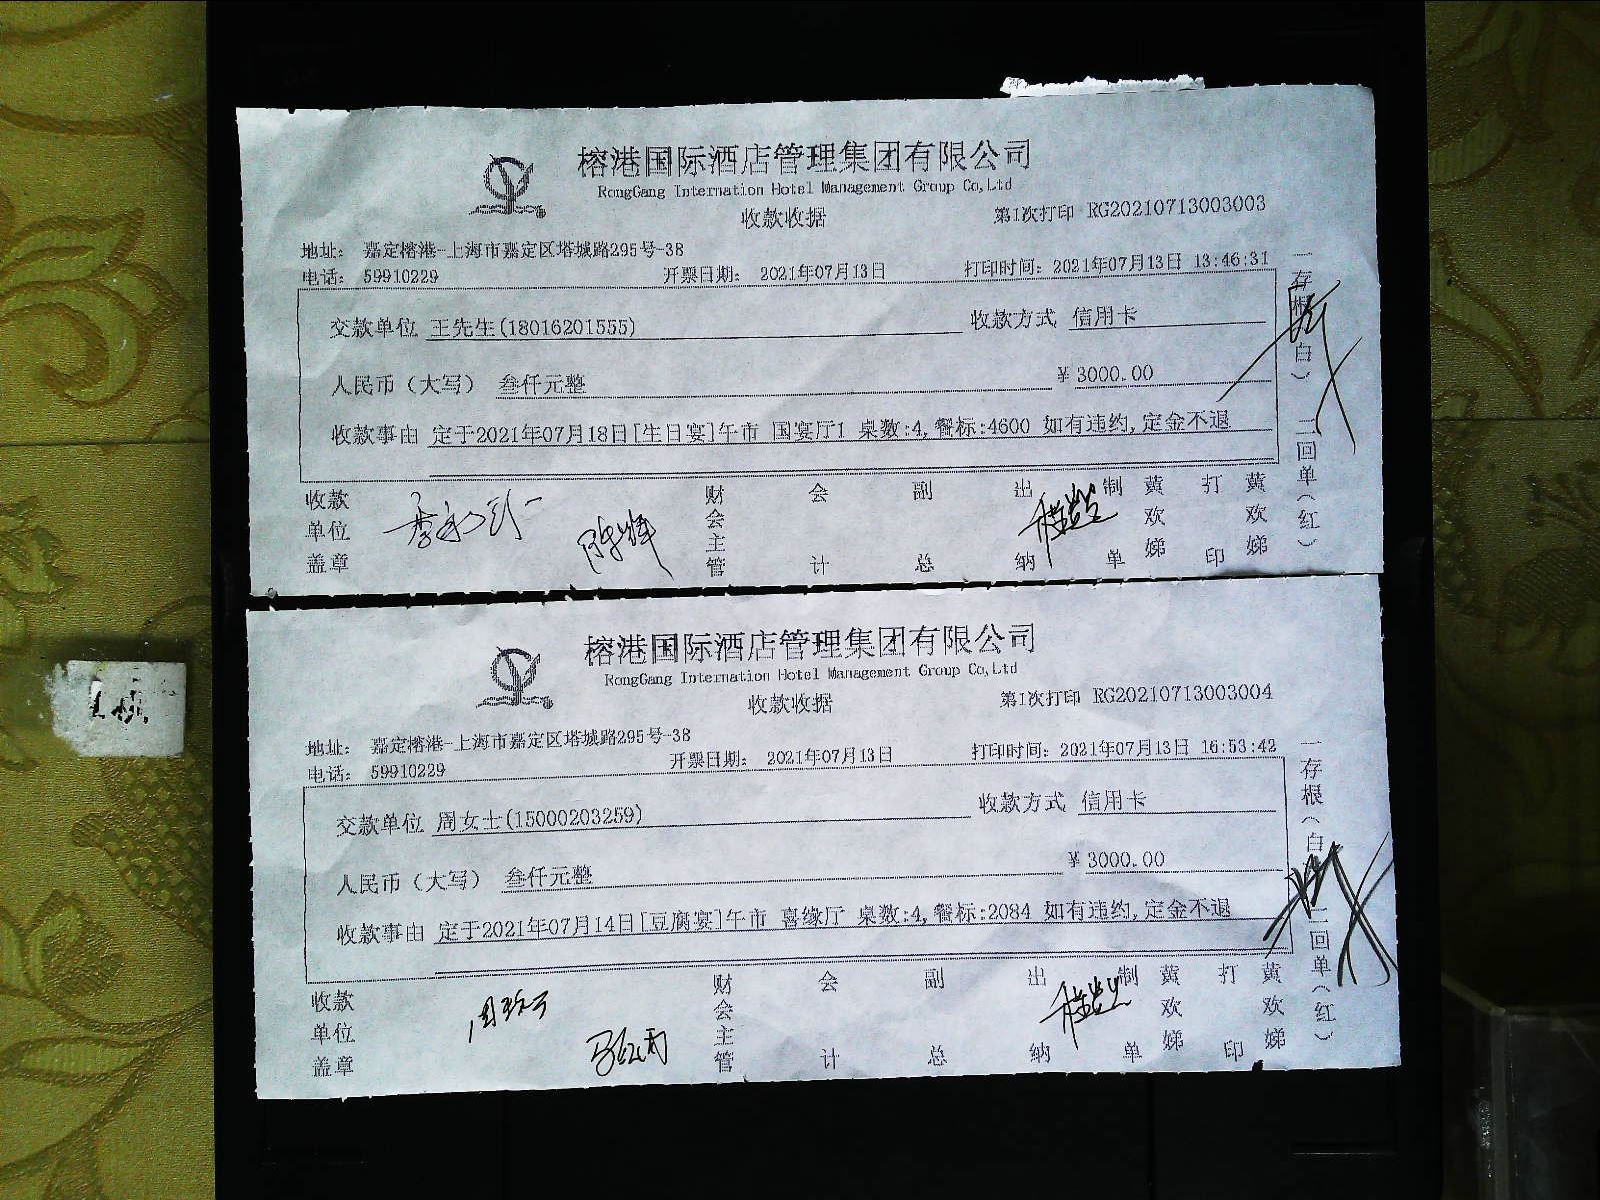 榕港国际酒店管理集团有限公司
RongGang Internation Hotel Management Group Co,Ltd
收款收据
第1次打印 RG20210713003003
地址： 嘉定榕港-上海市嘉定区塔城路295号-38
电话： 59910229 开票日期： 2021年07月13日 打印时间：2021年07月13日 13:46:31
交款单位 王先生(18016201555) 收款方式 信用卡
人民币（大写） 叁仟元整 ¥ 3000.00
收款事由 定于2021年07月18日[生日宴]午市 国宴厅1 桌数:4,餐标:4600 如有违约,定金不退
收款单位盖章 财会主管 会计 副总 出纳 制单 黄欢娣 打印 黄欢娣
一存根（白） 二回单（红）
榕港国际酒店管理集团有限公司
RongGang Internation Hotel Management Group Co,Ltd
收款收据
第1次打印 RG20210713003004
地址： 嘉定榕港-上海市嘉定区塔城路295号-38
电话： 59910229 开票日期： 2021年07月13日 打印时间：2021年07月13日 16:53:42
交款单位 周女士(15000203259) 收款方式 信用卡
人民币（大写） 叁仟元整 ¥ 3000.00
收款事由 定于2021年07月14日[豆腐宴]午市 喜缘厅 桌数:4,餐标:2084 如有违约,定金不退
收款单位盖章 财会主管 会计 副总 出纳 制单 黄欢娣 打印 黄欢娣
一存根（白 二回单（红）